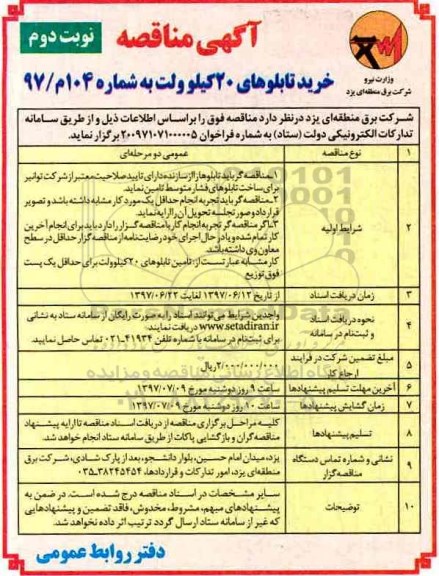 آگهی مناقصه
نوبت دوم
وزارت نیرو
شرکت برق منطقه‌ای یزد
خرید تابلوهای ۲۰کیلوولت به شماره ۱۰۴م/۹۷
شرکت برق منطقه‌ای یزد درنظر دارد مناقصه فوق را براساس اطلاعات ذیل و از طریق سامانه
تدارکات الکترونیکی دولت (ستاد) به شماره فراخوان ۲۰۰۹۷۱۰۷۱۰۰۰۰۰۵ برگزار نماید.
۱ نوع مناقصه عمومی دو مرحله‌ای
۲ شرایط اولیه
۱ـ مناقصه‌گر باید تابلوها را از سازنده دارای تایید صلاحیت معتبر از شرکت توانیر
برای ساخت تابلوهای فشار متوسط تامین نماید.
۲ـ مناقصه‌گر باید تجربه انجام حداقل یک مورد کار مشابه داشته باشد و تصویر
قرارداد و صورتجلسه تحویل آن را ارایه نماید.
۳ـ اگر مناقصه‌گر تجربه انجام کار با مناقصه‌گزار را دارد باید برای انجام آخرین
کار تمام شده و یا در حال اجرای خود رضایتنامه از مناقصه‌گزار حداقل در سطح
معاون وی داشته باشد.
کار مشابه عبارتست از: تامین تابلوهای ۲۰کیلوولت برای حداقل یک پست
فوق توزیع
۳ زمان دریافت اسناد از تاریخ ۱۳۹۷/۰۶/۱۲ لغایت ۱۳۹۷/۰۶/۲۲
۴ نحوه دریافت اسناد و ثبت‌نام در سامانه
واجدین شرایط می‌توانند اسناد را به صورت رایگان از سامانه ستاد به نشانی
www.setadiran.ir دریافت نمایند.
برای ثبت‌نام در سامانه با شماره تلفن ۴۱۹۳۴-۰۲۱ تماس حاصل نمایید.
۵ مبلغ تضمین شرکت در فرایند ارجاع کار ۲/۰۰۰/۰۰۰/۰۰۰ریال
۶ آخرین مهلت تسلیم پیشنهادها ساعت ۹ روز دوشنبه مورخ ۱۳۹۷/۰۷/۰۹
۷ زمان گشایش پیشنهادها ساعت ۱۰ روز دوشنبه مورخ ۱۳۹۷/۰۷/۰۹
۸ تسلیم پیشنهادها
کلیه مراحل برگزاری مناقصه از دریافت اسناد مناقصه تا ارایه پیشنهاد
مناقصه‌گران و بازگشایی پاکات از طریق سامانه ستاد انجام خواهد شد.
۹ نشانی و شماره تماس دستگاه مناقصه‌گزار
یزد، میدان امام حسین، بلوار دانشجو، بعد از پارک شادی، شرکت برق
منطقه‌ای یزد، امور تدارکات و قراردادها، ۳۸۲۴۵۴۵۴-۰۳۵
۱۰ توضیحات
سایر مشخصات در اسناد مناقصه درج شده است. در ضمن به
پیشنهادهای مبهم، مشروط، مخدوش، فاقد تضمین و پیشنهادهایی
که غیر از سامانه ستاد ارسال گردد ترتیب اثر داده نخواهد شد.
دفتر روابط عمومی